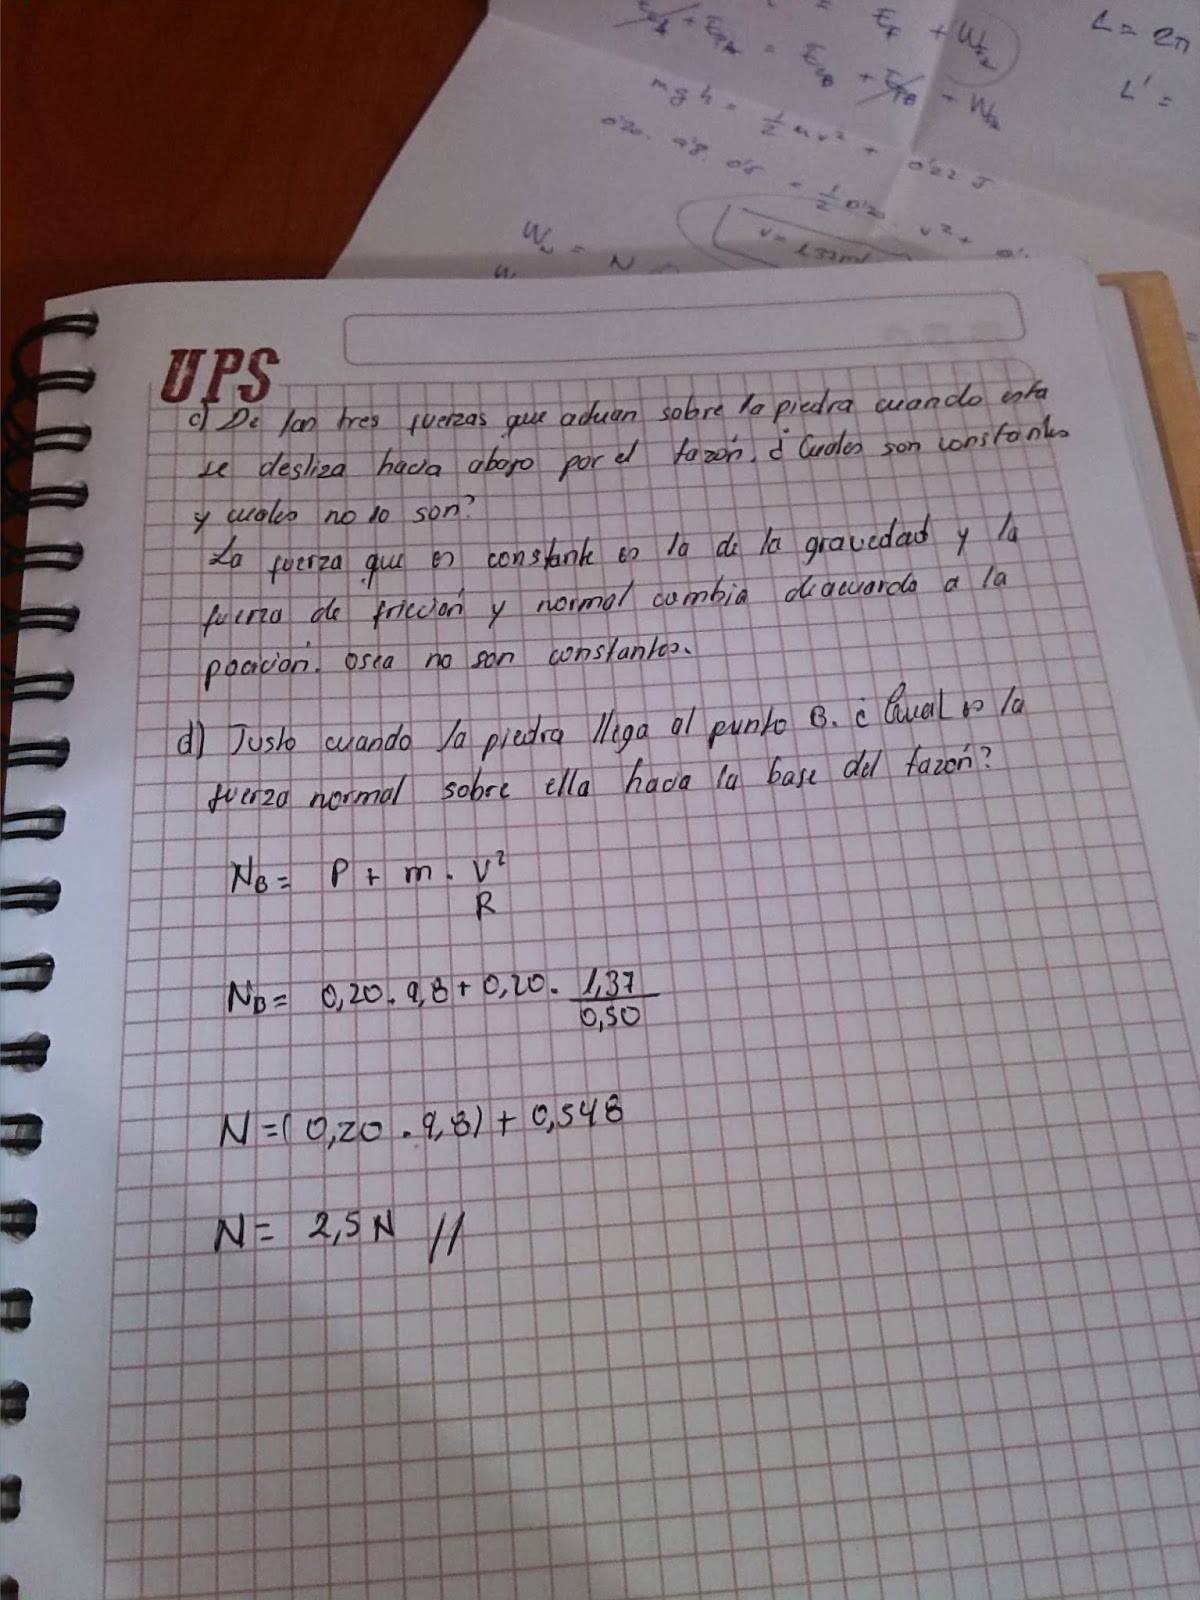 + EpA = EcB + EpB + WFr
Ef + WFr
mgh = 1/2 mv² + 0'22 J
0'20. 9'8. 0'5 = 1/2 0'20 v² +
WN = N
L = 2π
L' =
UPS
c) De las tres fuerzas que actuan sobre la piedra cuando esta
se desliza hacia abajo por el tazón. ¿Cuales son constantes
y cuales no lo son?
La fuerza que es constante es la de la gravedad y la
fuerza de fricción y normal cambia deacuardo a la
pocición. osea no son constantes.
d) Justo cuando la piedra llega al punto B. ¿Cual es la
fuerza normal sobre ella hacia la base del tazón?
NB = P + m . V²
R
NB = 0,20 . 9,8 + 0,20 . 1,37
0,50
N = (0,20 . 9,8) + 0,548
N = 2,5 N //